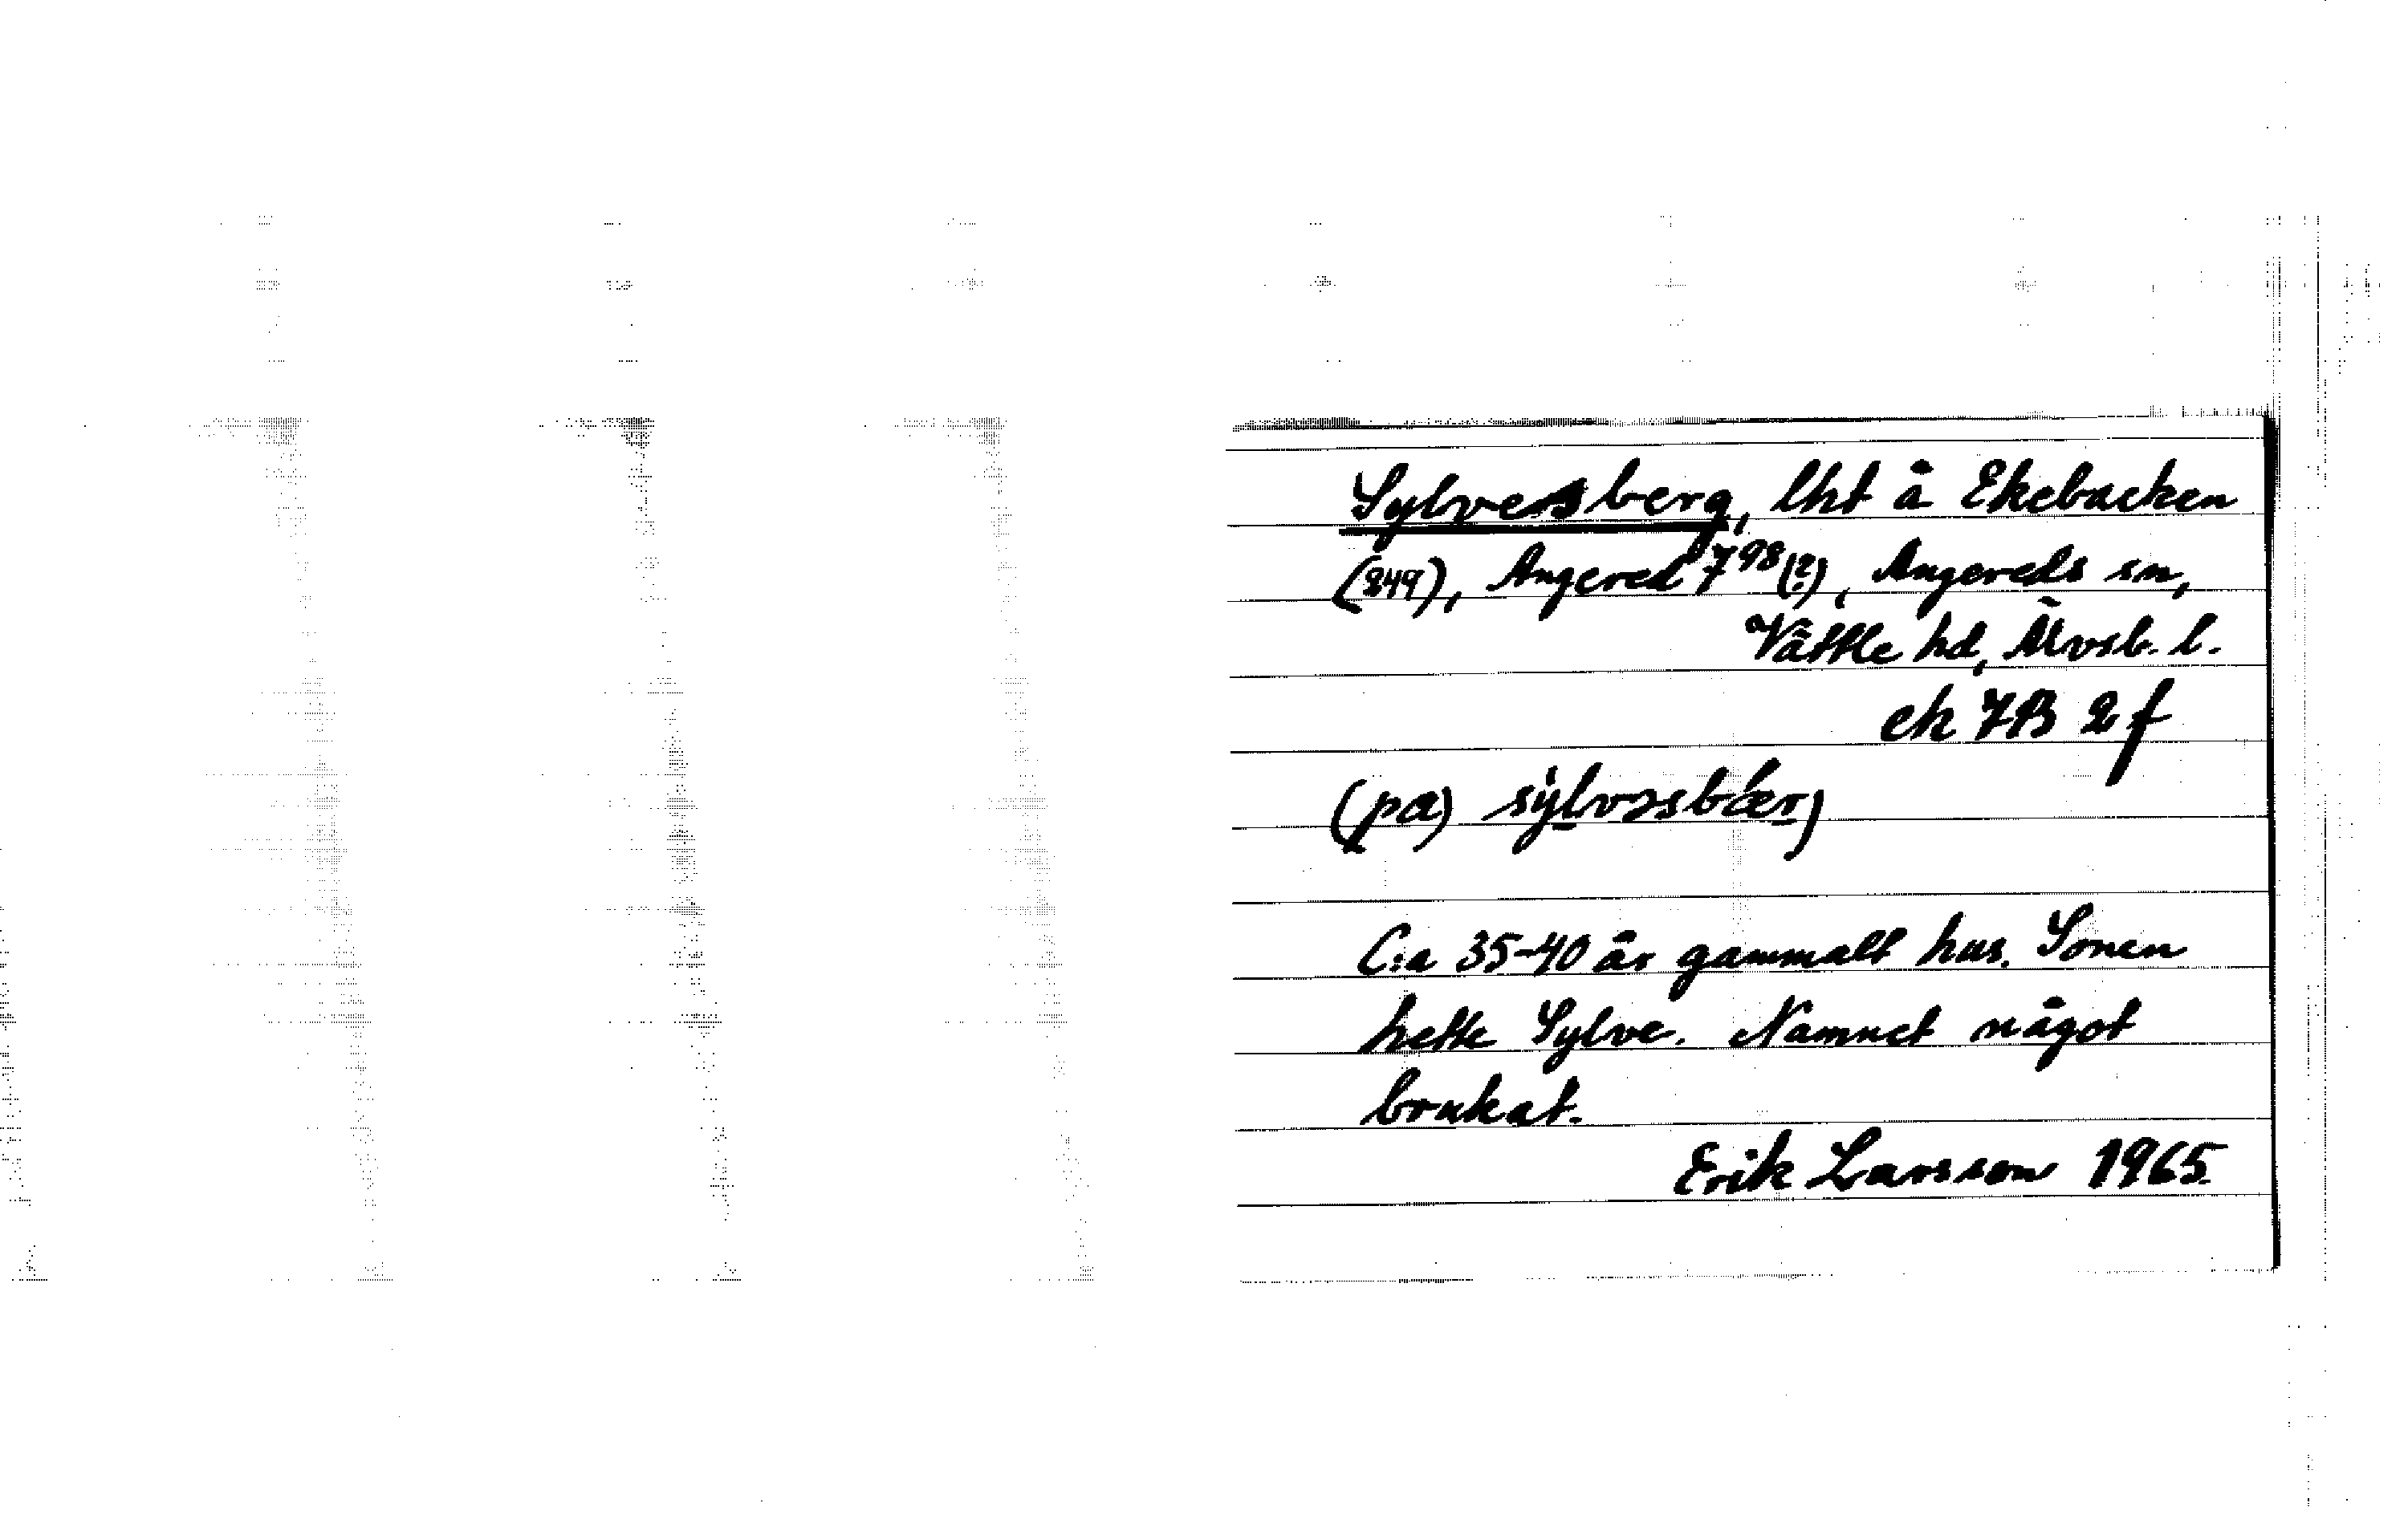 Sylversberg, lht å Ekebacken
(849), Angered 7⁹⁸(?), Angereds sn,
Vättle hd, Älvsb. l.
ek 7B 2f
(pa)
C:a 35-40 år gammalt hus. Sonen
hette Sylve. Namnet något
brukat.
Erik Larsson 1965.